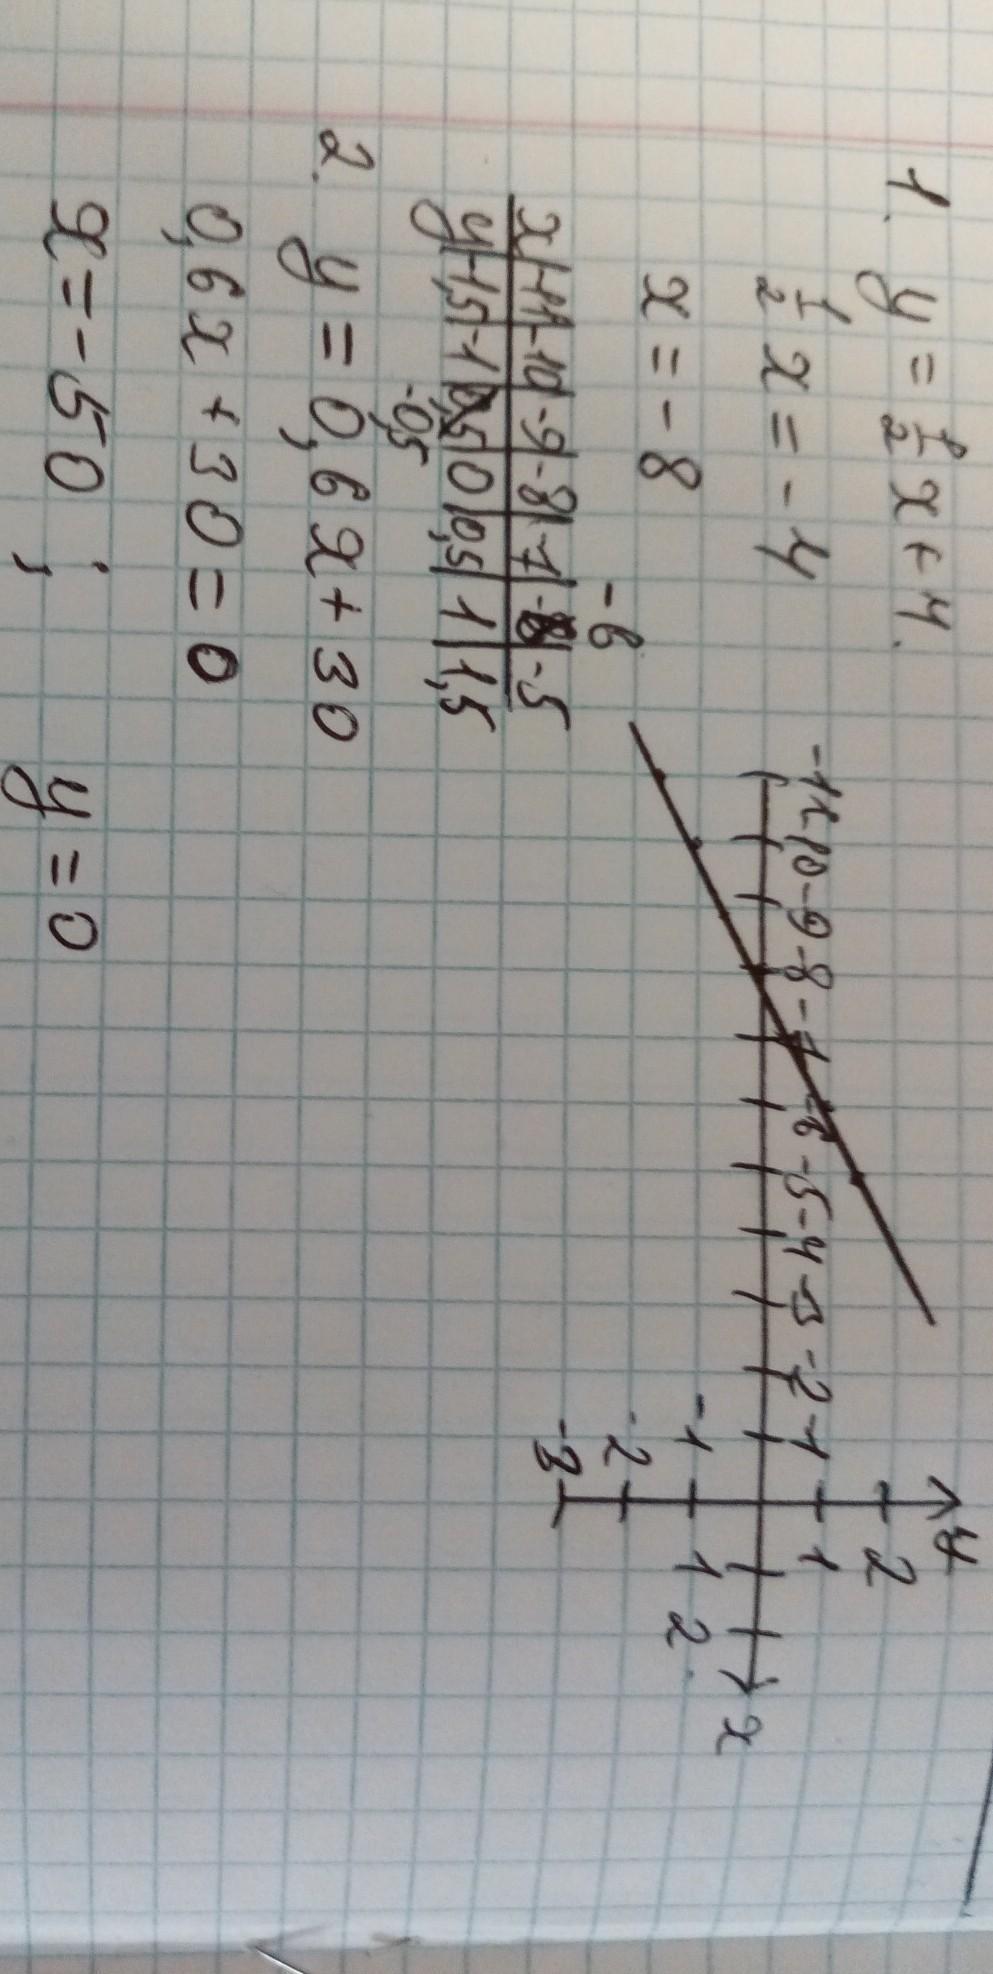 1. y = 1/2 x + 4.
1/2 x = -4
x = -8
y
2
1
-11 -10 -9 -8 -7 -6 -5 -4 -3 -2 -1
1 2 x
-1
-2
-3
-6
x | -11 | -10 | -9 | -8 | -7 | -5
y | -1,5 | -1 | 0 | 0,5 | 1 | 1,5
-0,5
2. y = 0,6x + 30
0,6x + 30 = 0
x = -50 ; y = 0